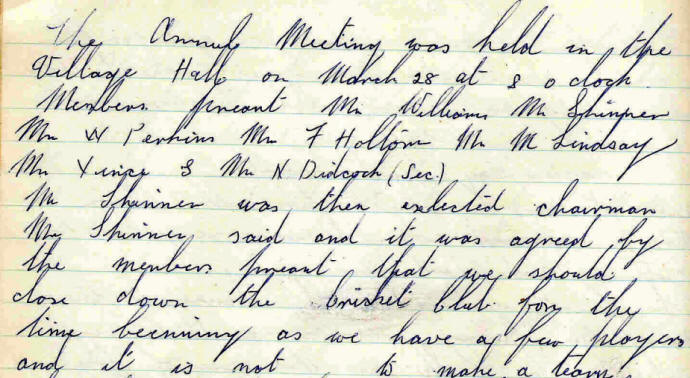 The Annual Meeting was held in the
Village Hall on March 28 at 8 o clock.
Members preant Mr Williams Mr Skinner
Mr W Perkins Mr F Hollom Mr M Lindsay
Mr Vince & Mr N Didcock (Sec.)
Mr Skinner was then exlected chairman
Mr Skinner said and it was agreed by
the members preant that we should
close down the Cricket Club for the
time becoming as we have a few players
and it is not to make a team